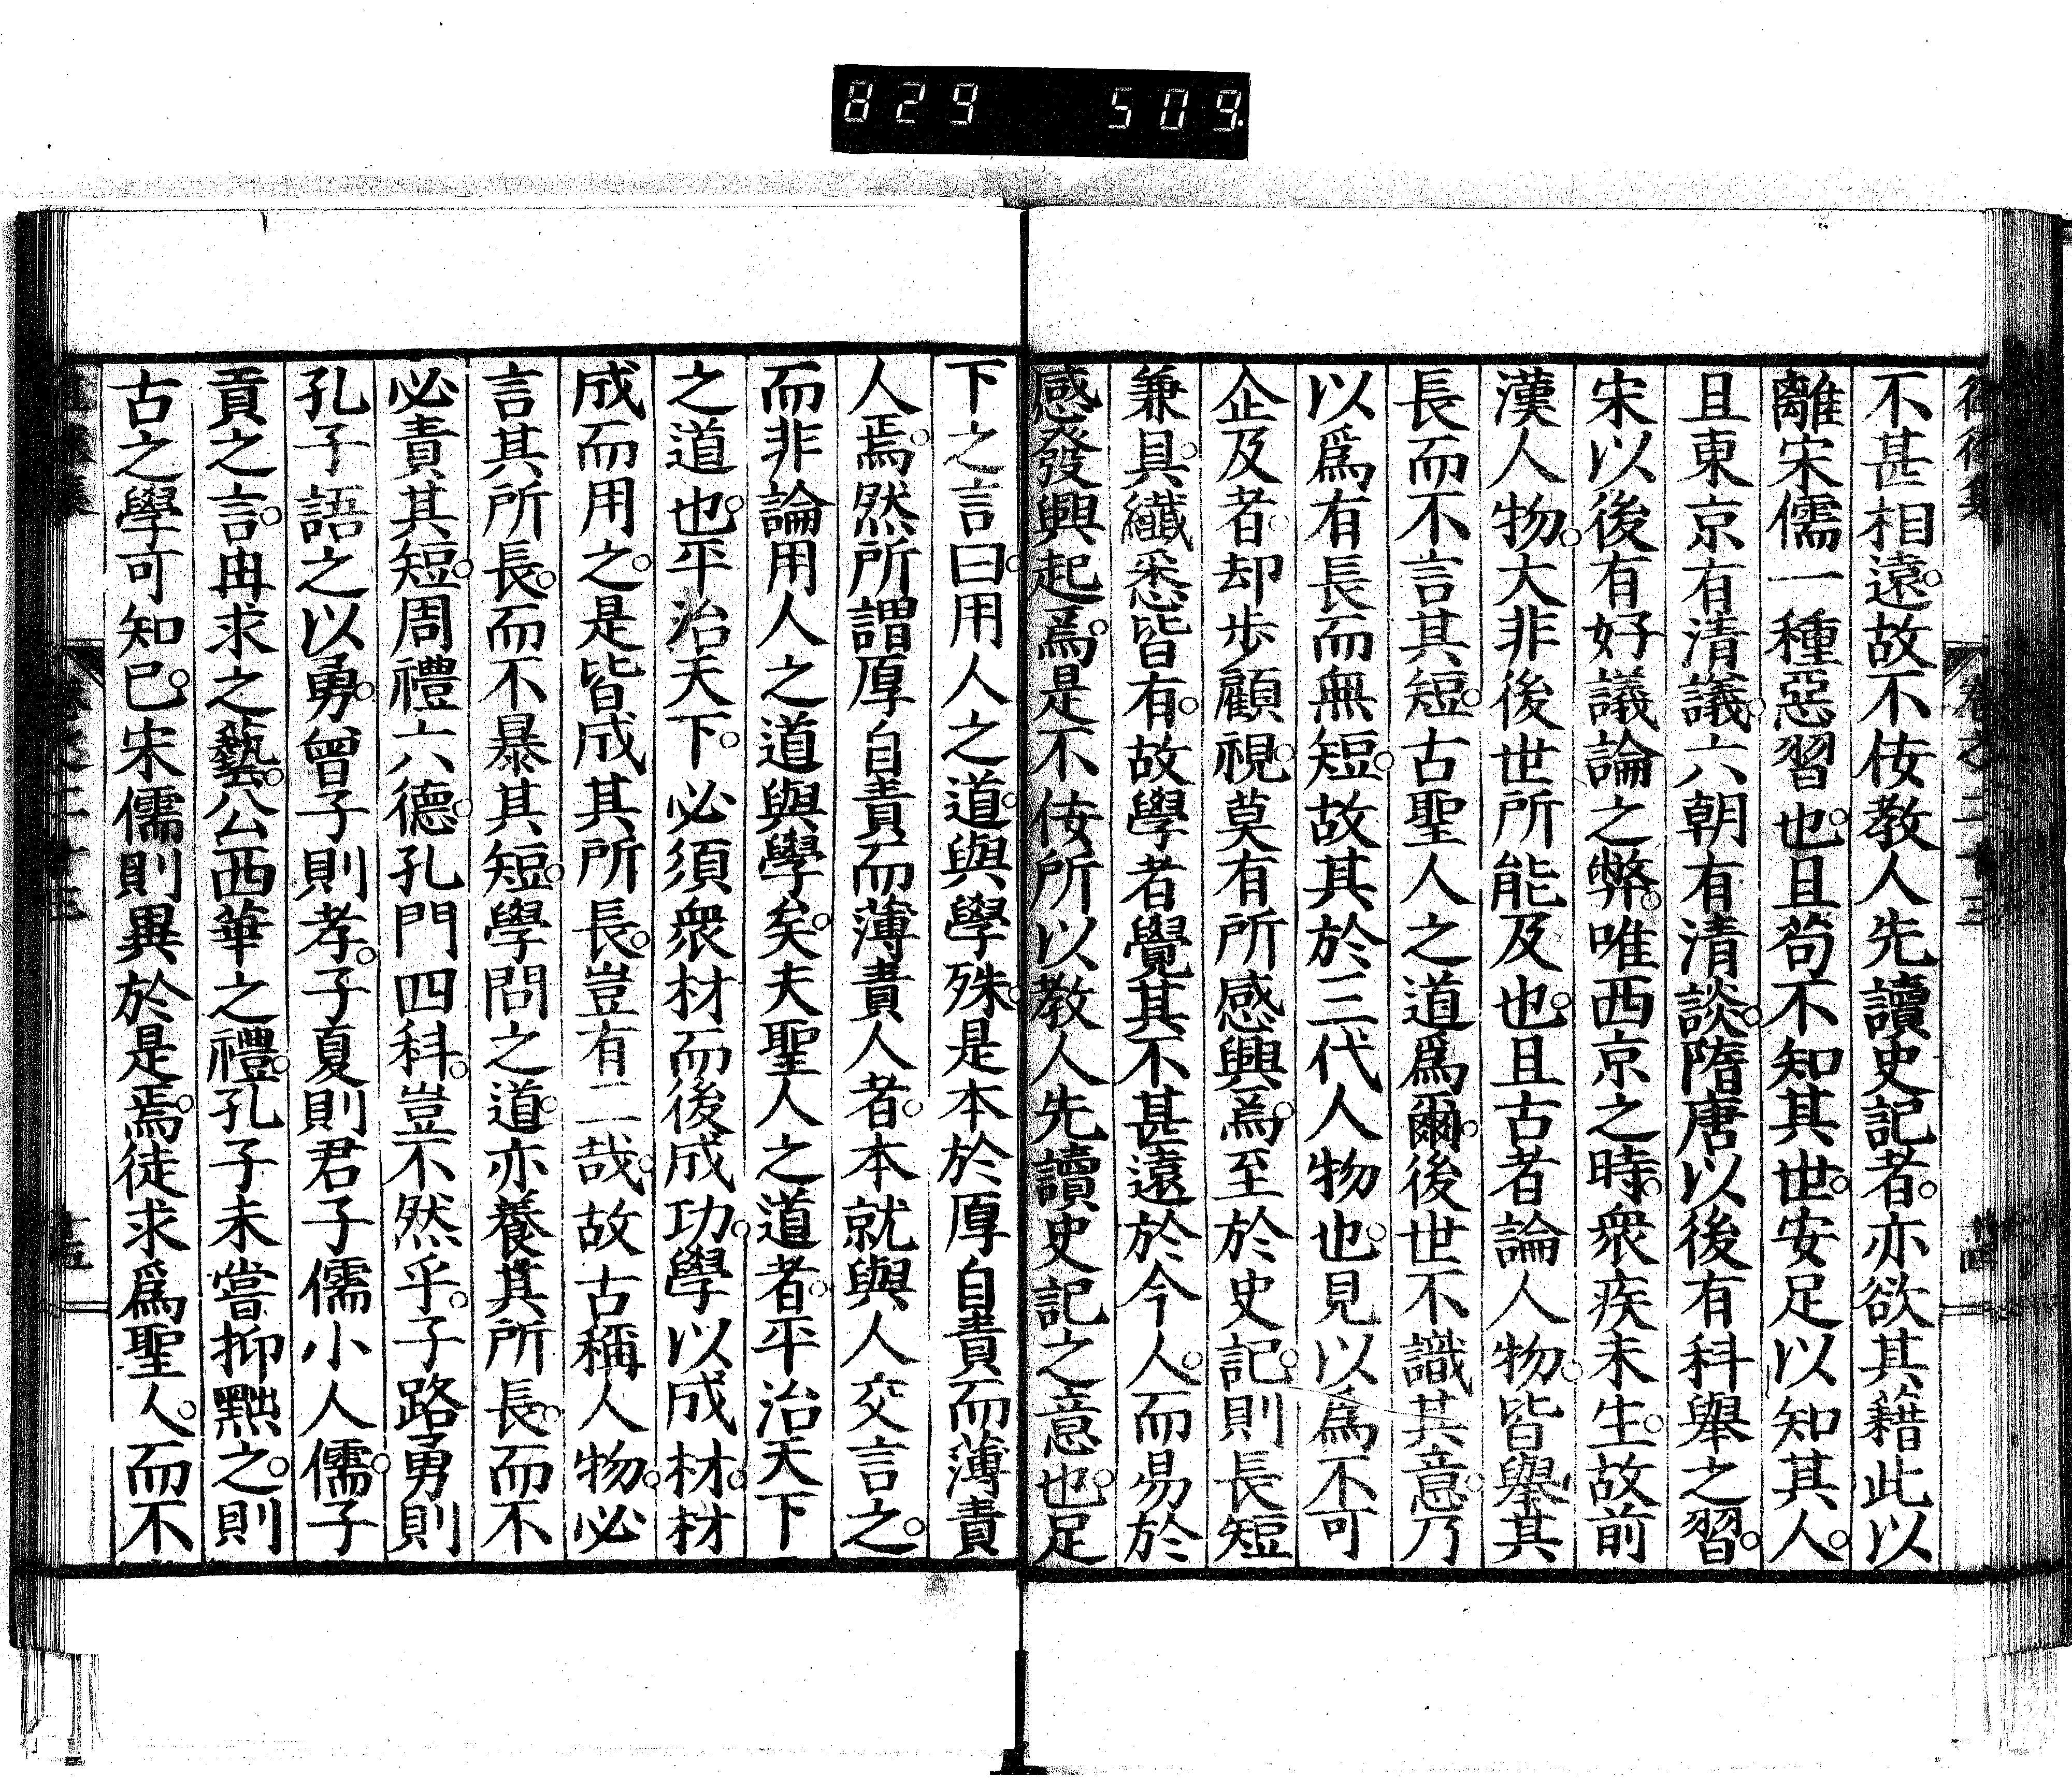 829 509
不甚相遠。故不佞教人先讀史記者。亦欲其藉此以
離宋儒一種惡習也。且苟不知其世。安足以知其人。
且東京有清議。六朝有清談。隋唐以後有科舉之習。
宋以後有好議論之弊。唯西京之時。衆疾未生。故前
漢人物。大非後世所能及也。且古者論人物。皆舉其
長而不言其短。古聖人之道爲爾。後世不識其意。乃
以爲有長而無短。故其於三代人物也。見以爲不可
企及者。却步顧視。莫有所感興焉。至於史記。則長短
兼具。纖悉皆有。故學者覺其不甚遠於今人。而易於
感發興起焉。是不佞所以教人先讀史記之意也。足
下之言曰。用人之道。與學殊。是本於厚自責而薄責
人焉。然所謂厚自責而薄責人者。本就與人交言之。
而非論用人之道與學矣。夫聖人之道者。平治天下
之道也。平治天下。必須衆材而後成功。學以成材。材
成而用之。是皆成其所長。豈有二哉。故古稱人物。必
言其所長。而不暴其短。學問之道。亦養其所長。而不
必責其短。周禮六德。孔門四科。豈不然乎。子路勇則
孔子語之以勇。曾子則孝。子夏則君子儒小人儒。子
貢之言。冉求之藝。公西華之禮。孔子未嘗抑黜之。則
古之學可知已。宋儒則異於是焉。徒求爲聖人。而不